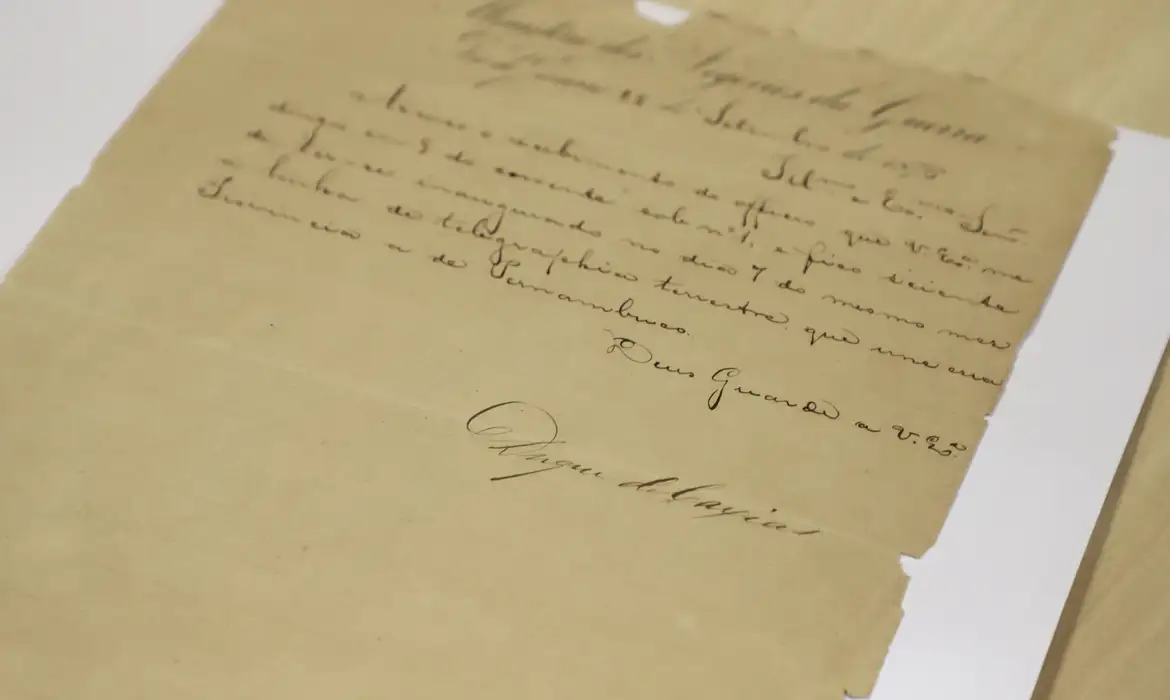 Negocios da Guerra
de Janeiro 22 de Setembro de 187
Illmo e Exo. Senr.
Accuso o recebimento do officio que V. Exa. me
dirigio em 9 do corrente sob n.º 1, e fico sciente
de ter-se inaugurado no dia 7 do mesmo mez
a linha de telegraphia terrestre que une essa
Provincia a de Pernambuco.
Deus Guarde a V. Exa.
Duque de Caxias